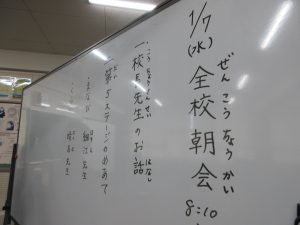 1/7
(水)
全校朝会
ぜんこうちょうかい
8:10
一校長先生のお話
こうちょうせんせい はなし
一第5ステージのめあて
だい
・まなび
先生
先生